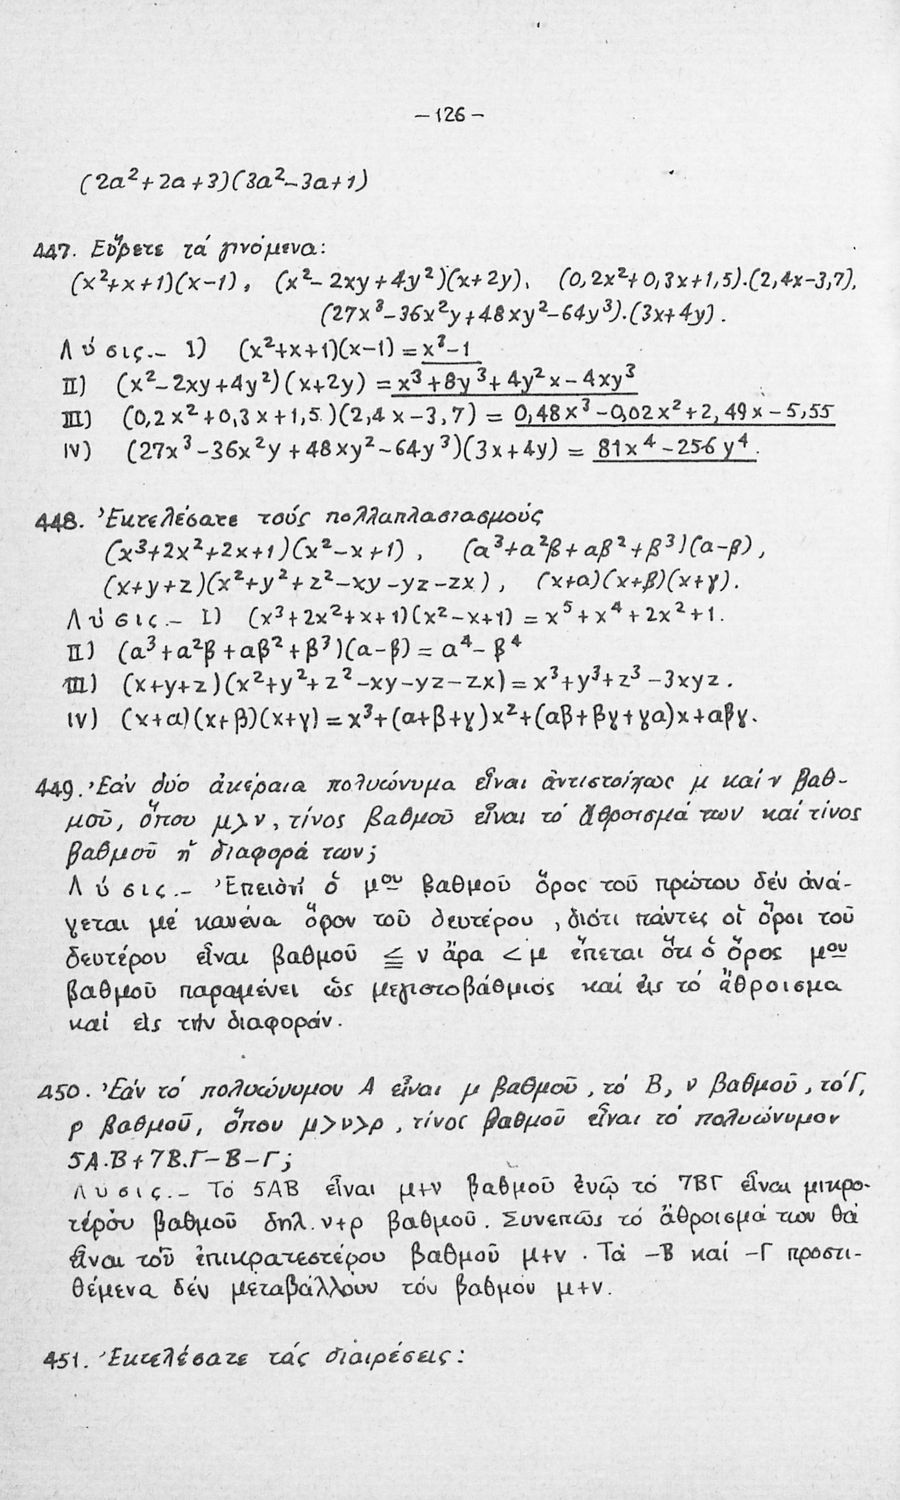 - 126 -
(2α²+2α+3)(3α²-3α+1)
447. Εὕρετε τά γινόμενα:
(x²+x+1)(x-1), (x²-2xy+4y²)(x+2y), (0,2x²+0,3x+1,5).(2,4x-3,7),
(27x³-36x²y+48xy²-64y³).(3x+4y).
Λύσις.- I) (x²+x+1)(x-1) = x³-1
II) (x²-2xy+4y²)(x+2y) = x³+8y³+4y²x-4xy³
III) (0,2x²+0,3x+1,5)(2,4x-3,7) = 0,48x³-0,02x²+2,49x-5,55
IV) (27x³-36x²y+48xy²-64y³)(3x+4y) = 81x⁴-256y⁴.
448. Ἐκτελέσατε τούς πολλαπλασιασμούς
(x³+2x²+2x+1)(x²-x+1), (α³+α²β+αβ²+β³)(α-β),
(x+y+z)(x²+y²+z²-xy-yz-zx), (x+α)(x+β)(x+γ).
Λύσις.- I) (x³+2x²+x+1)(x²-x+1) = x⁵+x⁴+2x²+1.
II) (α³+α²β+αβ²+β³)(α-β) = α⁴-β⁴
III) (x+y+z)(x²+y²+z²-xy-yz-zx) = x³+y³+z³-3xyz.
IV) (x+α)(x+β)(x+γ) = x³+(α+β+γ)x²+(αβ+βγ+γα)x+αβγ.
449. Ἐάν δύο ἀκέραια πολυώνυμα εἶναι ἀντιστοίχως μ καί ν βαθ-
μοῦ, ὅπου μ>ν, τίνος βαθμοῦ εἶναι τό ἄθροισμά των καί τίνος
βαθμοῦ ἡ διαφορά των;
Λύσις.- Ἐπειδή ὁ μου βαθμοῦ ὅρος τοῦ πρώτου δέν ἀνά-
γεται μέ κανένα ὅρον τοῦ δευτέρου, διότι πάντες οἱ ὅροι τοῦ
δευτέρου εἶναι βαθμοῦ ≦ ν ἄρα < μ ἕπεται ὅτι ὁ ὅρος μου
βαθμοῦ παραμένει ὡς μεγιστοβάθμιος καί εἰς τό ἄθροισμα
καί εἰς τήν διαφοράν.
450. Ἐάν τό πολυώνυμον Α εἶναι μ βαθμοῦ, τό Β, ν βαθμοῦ, τό Γ,
ρ βαθμοῦ, ὅπου μ>ν>ρ, τίνος βαθμοῦ εἶναι τό πολυώνυμον
5Α.Β+7Β.Γ-Β-Γ;
Λυσις.- Τό 5ΑΒ εἶναι μ+ν βαθμοῦ ἐνῷ τό 7ΒΓ εἶναι μικρο-
τέρου βαθμοῦ δηλ. ν+ρ βαθμοῦ. Συνεπῶς τό ἄθροισμά των θά
εἶναι τοῦ ἐπικρατεστέρου βαθμοῦ μ+ν. Τά -Β καί -Γ προστι-
θέμενα δέν μεταβάλλουν τόν βαθμόν μ+ν.
451. Ἐκτελέσατε τάς διαιρέσεις: